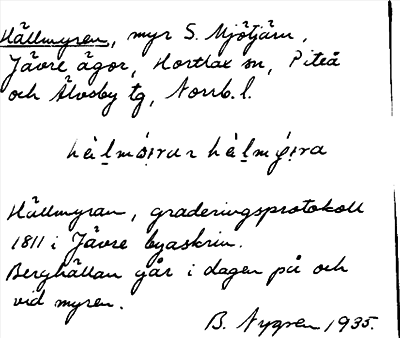 Hällmyren, myr S. Mjötjärn,
Jävre ägor, Hortlax sn, Piteå
och Älvsby tg, Norrb. l.
Hällmyran, graderingsprotokoll
1811 i Jävre byaskrin.
Berghällan går i dagen på och
vid myren.
B. Nygren 1935.